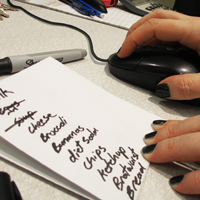 soup
cheese
Broccoli
Bananas
diet soda
chips
ketchup
Bratwurst
Bread